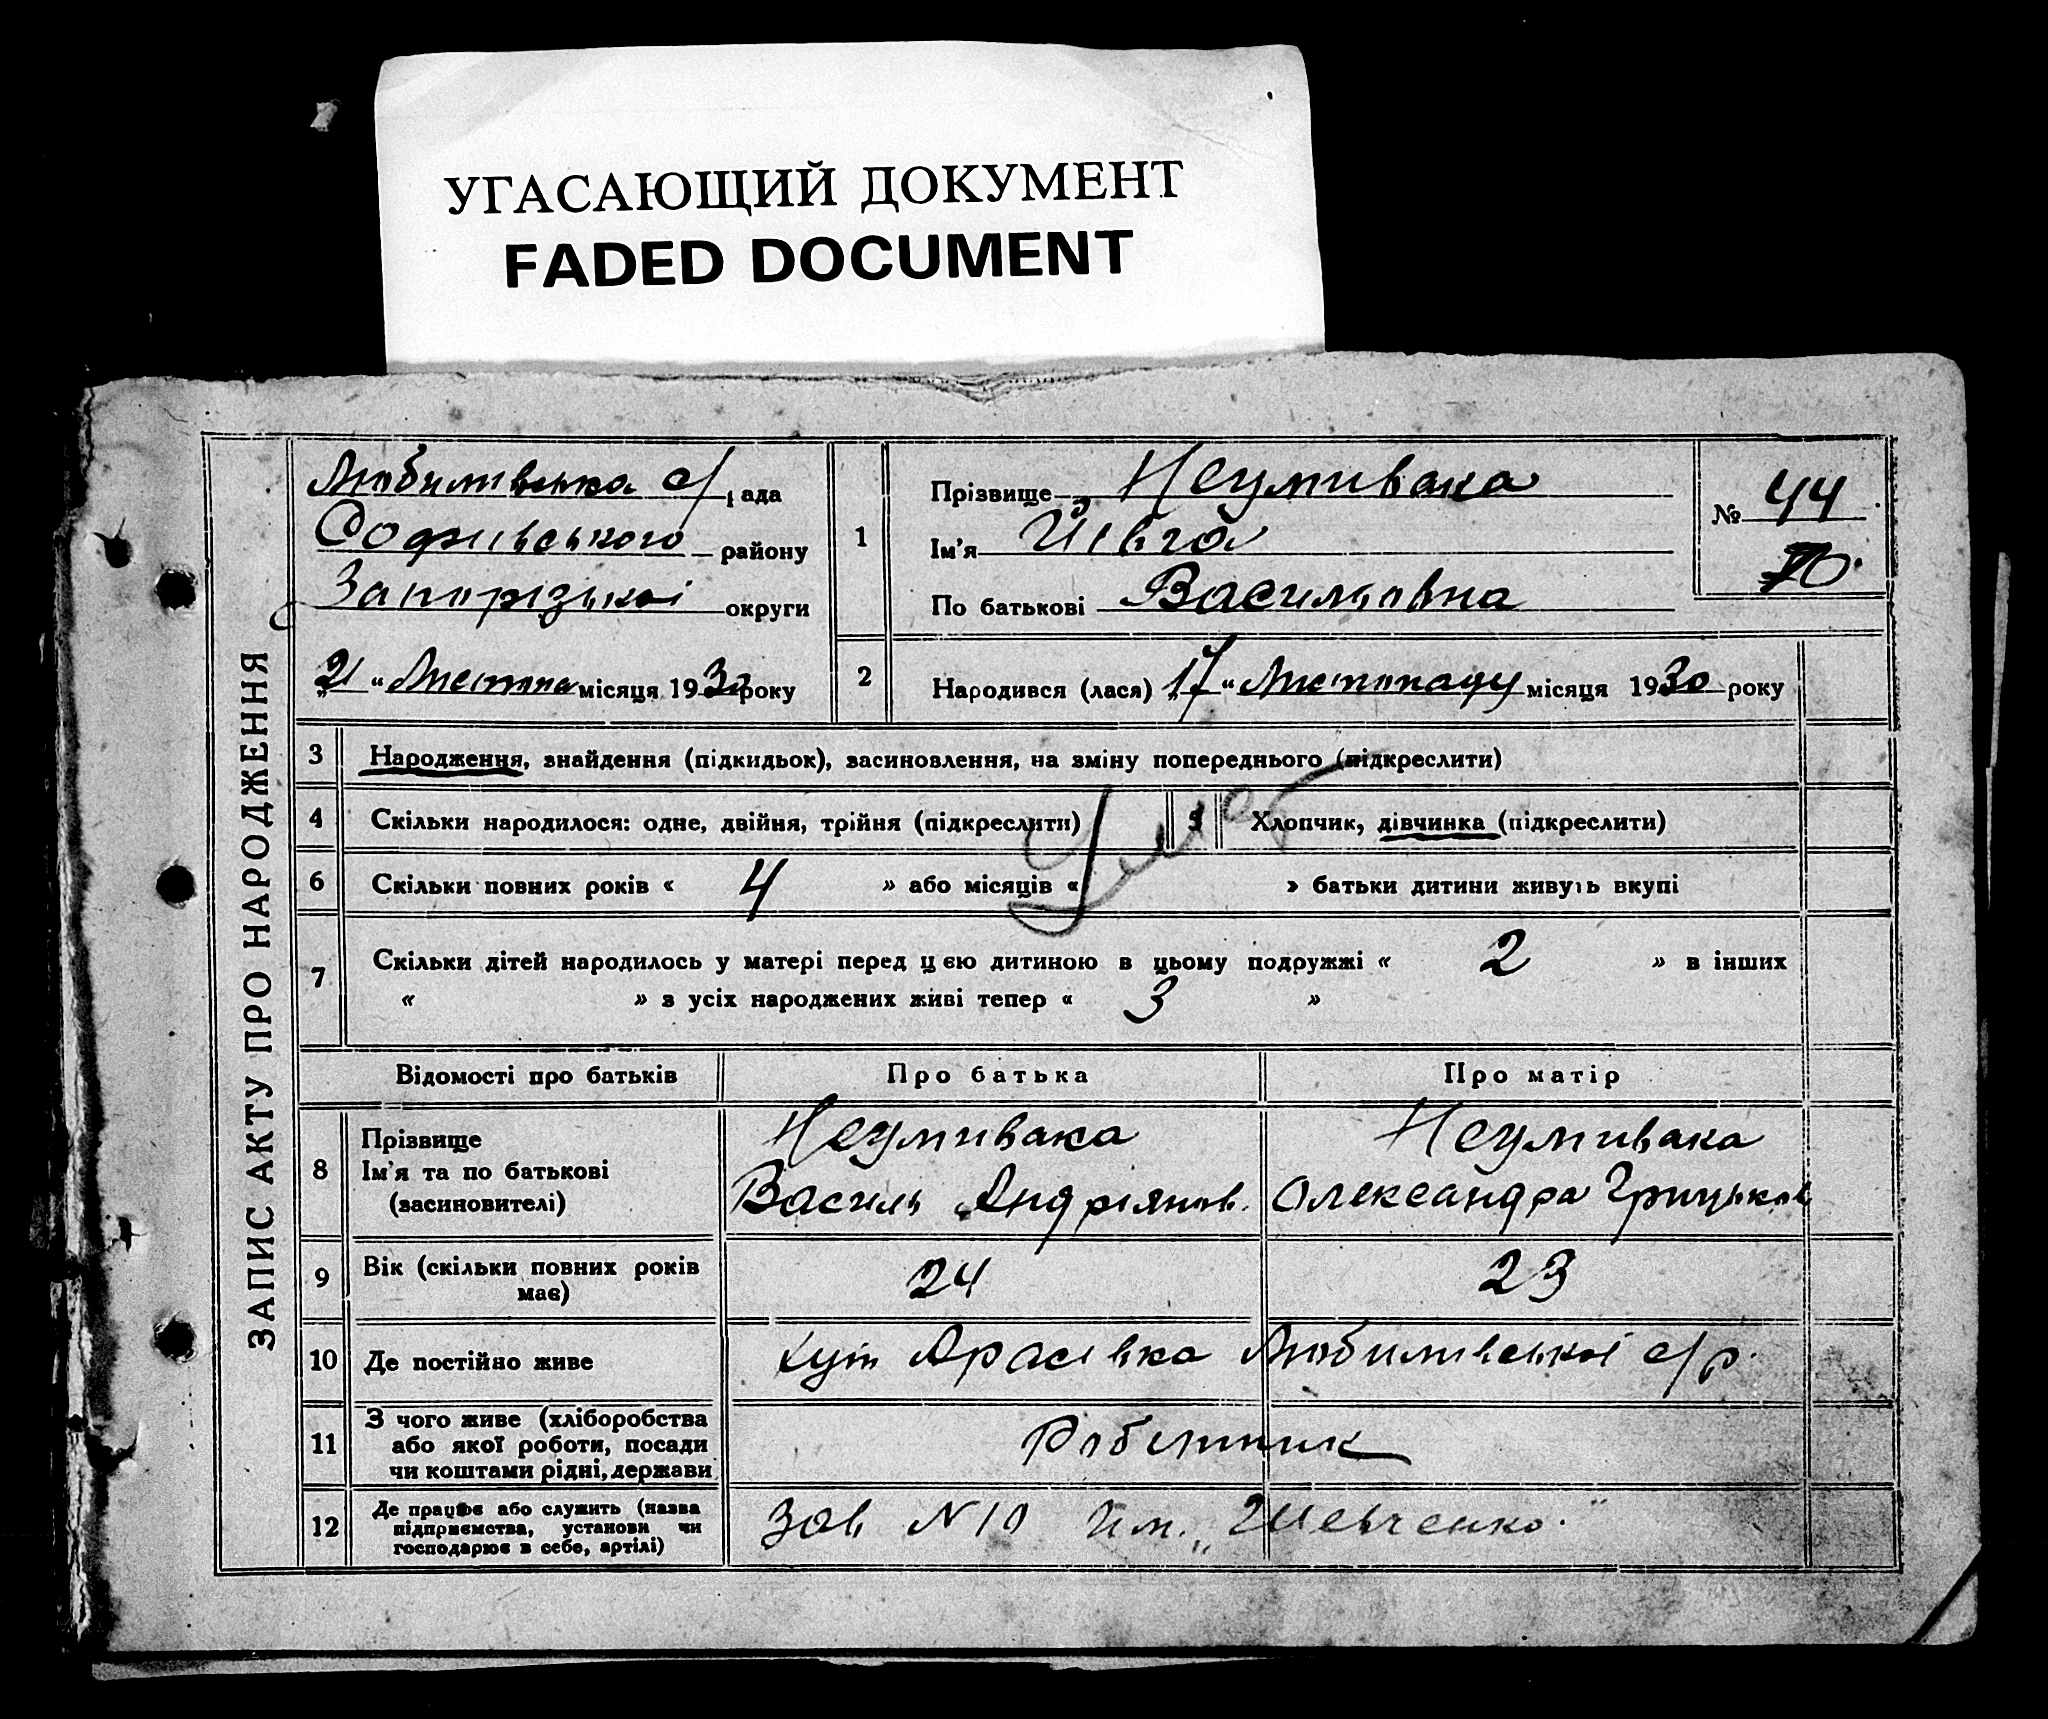 УГАСАЮЩИЙ ДОКУМЕНТ
FADED DOCUMENT
ЗАПИС АКТУ ПРО НАРОДЖЕННЯ
Любимівська с/рада
Софіївського району
Запорізької округи
„21“ Листопа місяця 1930 року
1
Прізвище Неумивака
Ім'я Йівга
По батькові Васильовна
№ 44
70.
2
Народився (лася) „17“ Листопаду місяця 1930 року
3 Народження, знайдення (підкидьок), засиновлення, на зміну попереднього (підкреслити)
4 Скільки народилося: одне, двійня, трійня (підкреслити)
Хлопчик, дівчинка (підкреслити)
6 Скільки повних років « 4 » або місяців « » батьки дитини живуть вкупі
7 Скільки дітей народилось у матері перед цією дитиною в цьому подружжі « 2 » в інших
« » з усіх народжених живі тепер « 3 »
Відомості про батьків Про батька Про матір
8
Прізвище
Ім'я та по батькові
(засиновителі)
Неумивака
Василь Андріянов.
Неумивака
Олександра Грицьков
9
Вік (скільки повних років
має)
24
23
10 Де постійно живе
хут Любимівської с/р.
11
З чого живе (хліборобства
або якої роботи, посади
чи коштами рідні, держави
Робітник
12
Де працює або служить (назва
підприємства, установи чи
господарює в себе, артілі)
Зав N 10 Им. „Шевченко"